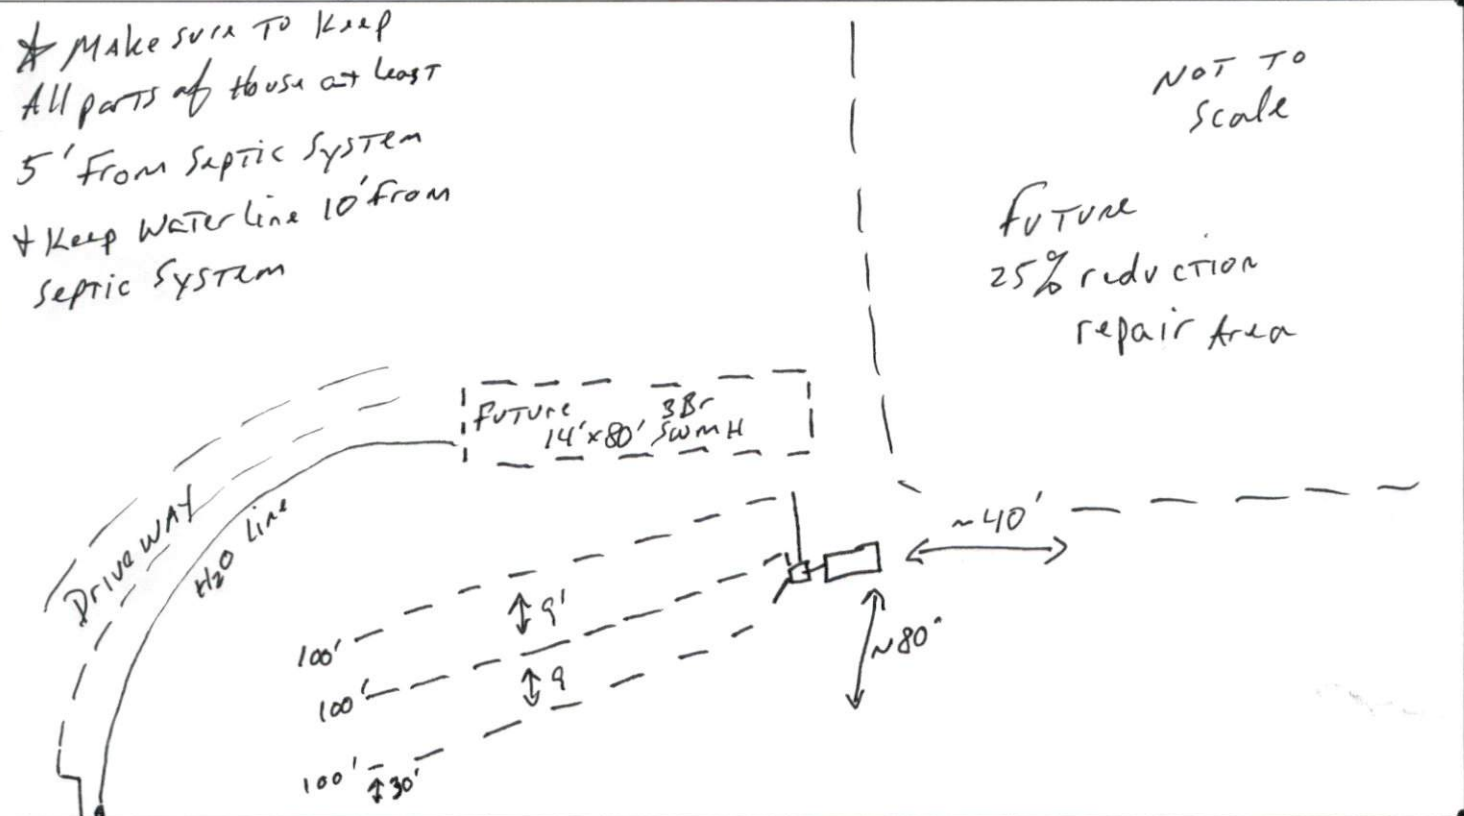 * Make sure To Keep
All parts of House at least
5' From Septic System
* Keep Water line 10' from
Septic System
NOT TO
Scale
Future
25% reduction
repair Area
Future 3Br
14'x80' SWMH
Driveway
H2O Line
~40'
9'
9
~80'
100'
100'
100'
30'